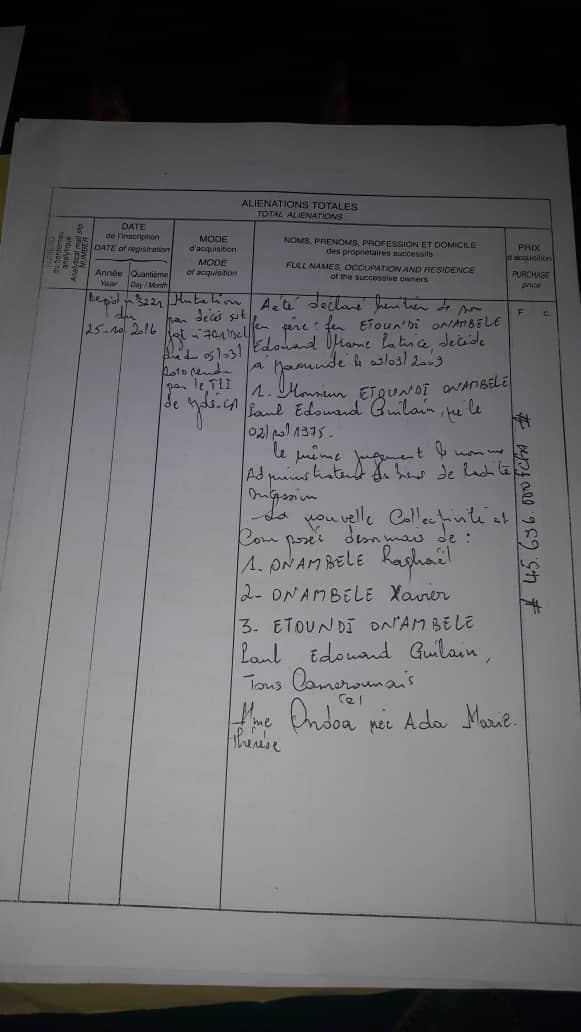 ALIENATIONS TOTALES
TOTAL ALIENATIONS
du bordereau
analytique
Analytical mail slip
NUMBER
DATE
de l'inscription
DATE of registration
Année
Year
Quantième
Day / Month
MODE
d'acquisition
MODE
of acquisition
NOMS, PRENOMS, PROFESSION ET DOMICILE
des propriétaires successifs
FULL NAMES, OCCUPATION AND RESIDENCE
of the successive owners
PRIX
d'acquisition
PURCHASE
price
F C.
Depôt n°3221
du
25-10-2016
Mutation
par décès sut
Jgt n°
du 05/03/
2010 rendu
par le TPI
de Ydé-
A été déclaré héritier de son
feu père : feu ETOUNDI ONAMBELE
Edouard Marie Patrice, décédé
à Yaoundé le 03/03/2003
1. Monsieur ETOUNDI ONAMBELE
Paul Edouard Guilain, né le
02/10/1975.
Le même jugement le nomme
Administrateur des biens de ladite
succession
- La nouvelle Collectivité est
Composée désormais de :
1- ONAMBELE Raphaël
2- ONAMBELE Xavier
3- ETOUNDI ON'AMBELE
Paul Edouard Guilain,
Tous Camerounais
(e)
Mme Ondoa née Ada Marie
Thérèse
# 45.696.000 FCFA #